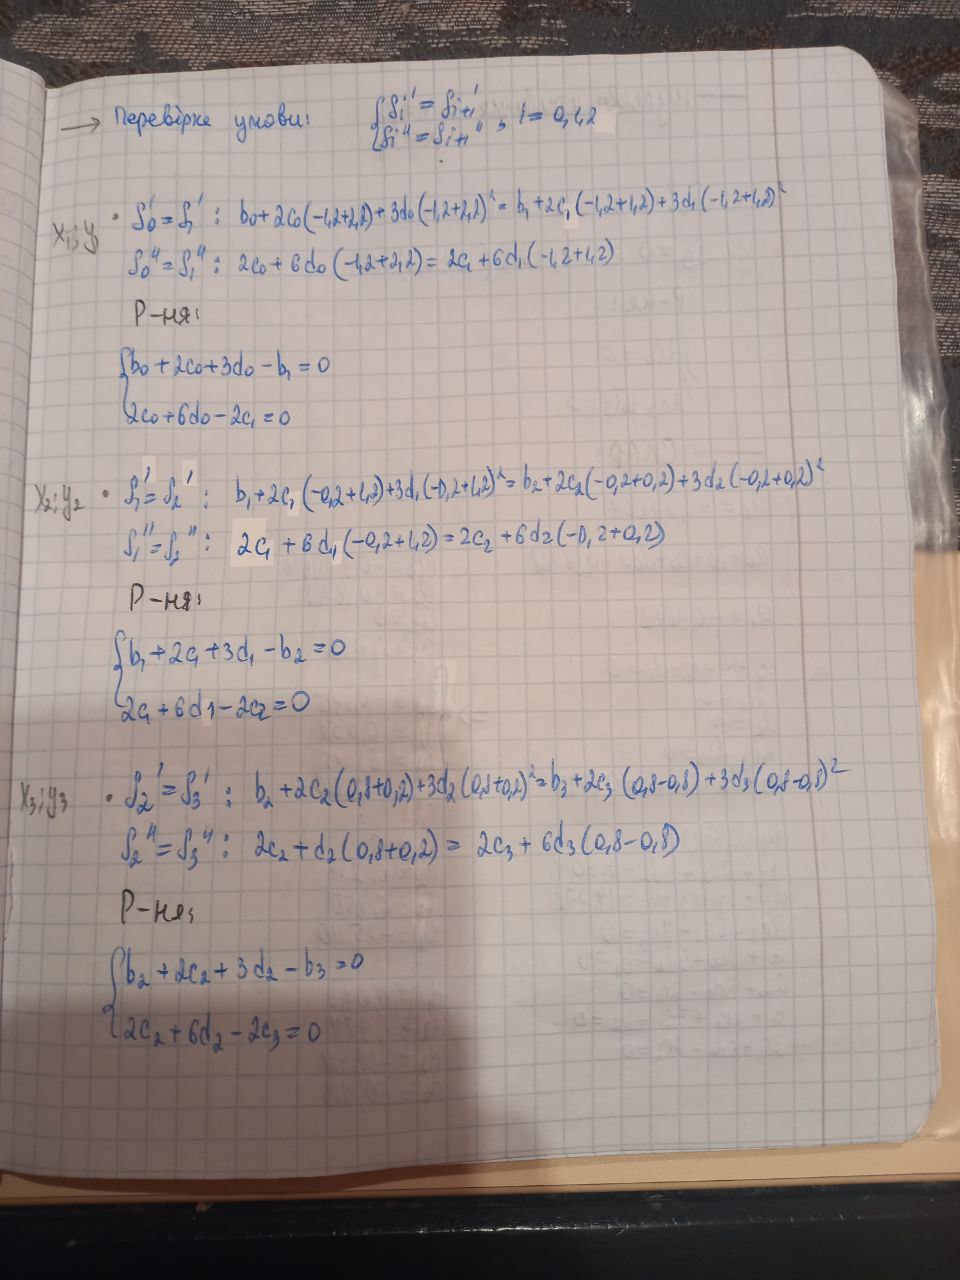 → Перевірка умови: { Si' = Si+1'
Si'' = Si+1'' , i = 0,1,2
x1; y
• S0' = S1' : b0 + 2c0(-1,2+2,2) + 3d0(-1,2+2,2)² = b1 + 2c1(-1,2+1,2) + 3d1(-1,2+1,2)²
S0'' = S1'' : 2c0 + 6d0(-1,2+2,2) = 2c1 + 6d1(-1,2+1,2)
Р-ня:
{ b0 + 2c0 + 3d0 - b1 = 0
2c0 + 6d0 - 2c1 = 0
x2; y2 • S1' = S2' : b1 + 2c1(-0,2+1,2) + 3d1(-0,2+1,2)² = b2 + 2c2(-0,2+0,2) + 3d2(-0,2+0,2)²
S1'' = S2'' : 2c1 + 6d1(-0,2+1,2) = 2c2 + 6d2(-0,2+0,2)
Р-ня:
{ b1 + 2c1 + 3d1 - b2 = 0
2c1 + 6d1 - 2c2 = 0
x3; y3 • S2' = S3' : b2 + 2c2(0,8+0,2) + 3d2(0,8+0,2)² = b3 + 2c3(0,8-0,8) + 3d3(0,8-0,8)²
S2'' = S3'' : 2c2 + d2(0,8+0,2) = 2c3 + 6d3(0,8-0,8)
Р-ня:
{ b2 + 2c2 + 3d2 - b3 = 0
2c2 + 6d2 - 2c3 = 0